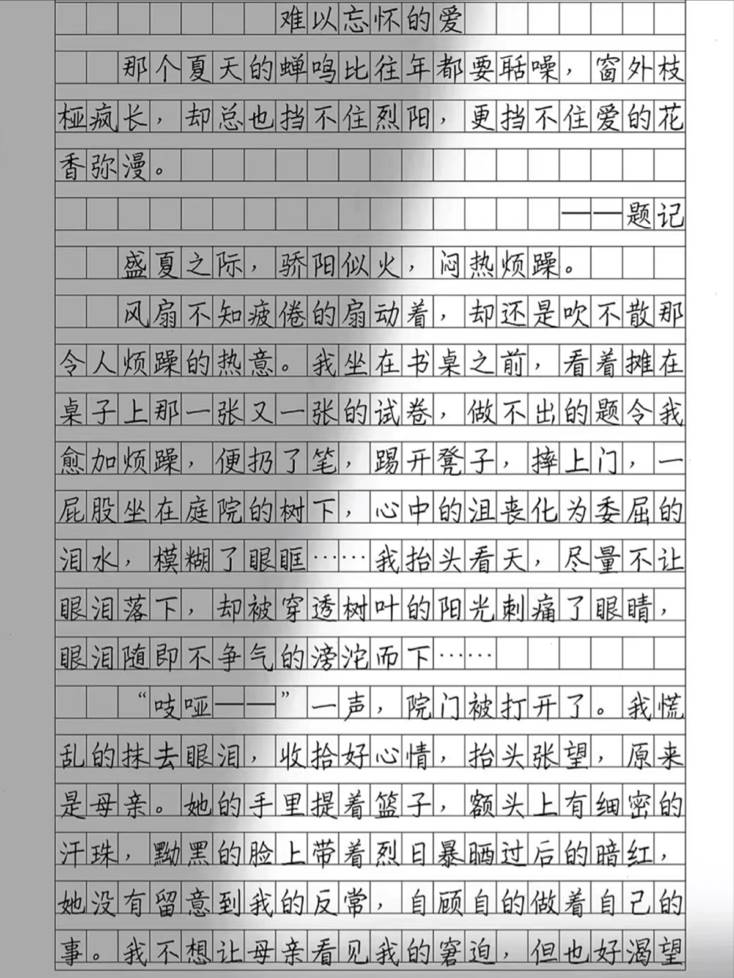 难以忘怀的爱
那个夏天的蝉鸣比往年都要聒噪，窗外枝
桠疯长，却总也挡不住烈阳，更挡不住爱的花
香弥漫。
——题记
盛夏之际，骄阳似火，闷热烦躁。
风扇不知疲倦的扇动着，却还是吹不散那
令人烦躁的热意。我坐在书桌之前，看着摊在
桌子上那一张又一张的试卷，做不出的题令我
愈加烦躁，便扔了笔，踢开凳子，摔上门，一
屁股坐在庭院的树下，心中的沮丧化为委屈的
泪水，模糊了眼眶……我抬头看天，尽量不让
眼泪落下，却被穿透树叶的阳光刺痛了眼睛，
眼泪随即不争气的滂沱而下……
“吱哑——”一声，院门被打开了。我慌
乱的抹去眼泪，收拾好心情，抬头张望，原来
是母亲。她的手里提着篮子，额头上有细密的
汗珠，黝黑的脸上带着烈日暴晒过后的暗红，
她没有留意到我的反常，自顾自的做着自己的
事。我不想让母亲看见我的窘迫，但也好渴望